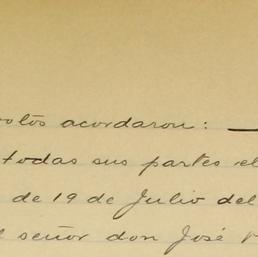 votos acordaron: —
todas sus partes el
de 19 de Julio del
señor don José